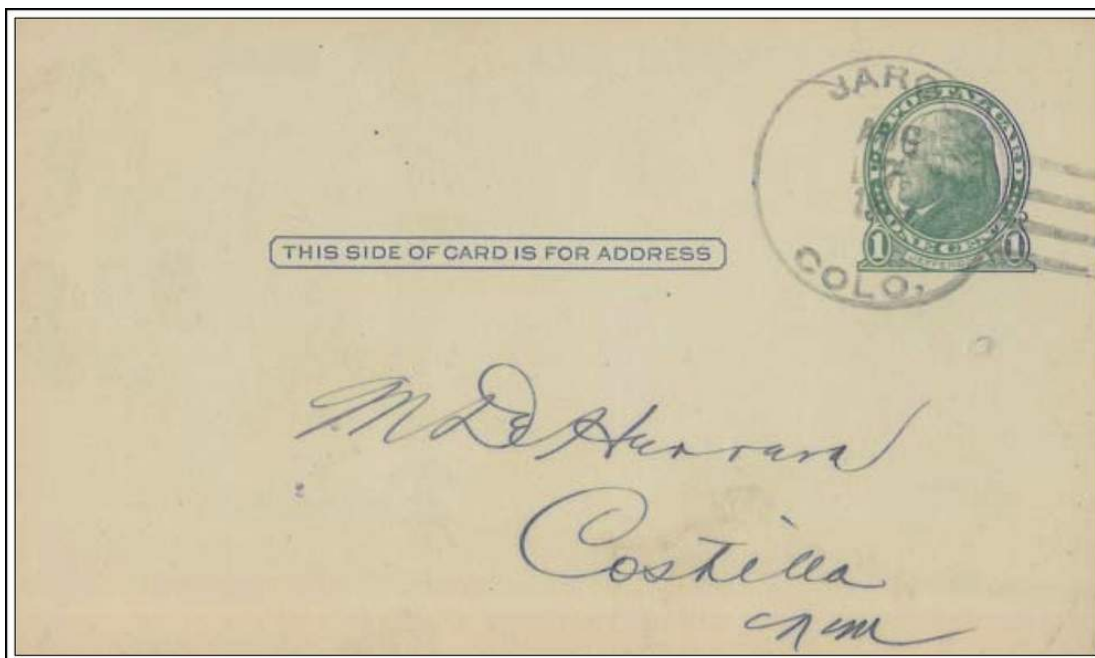 JARO
AUG
COLO.
U.S. POSTAL CARD
ONE CENT
1 1
JEFFERSON
THIS SIDE OF CARD IS FOR ADDRESS
M De Herrera
Costilla
NM